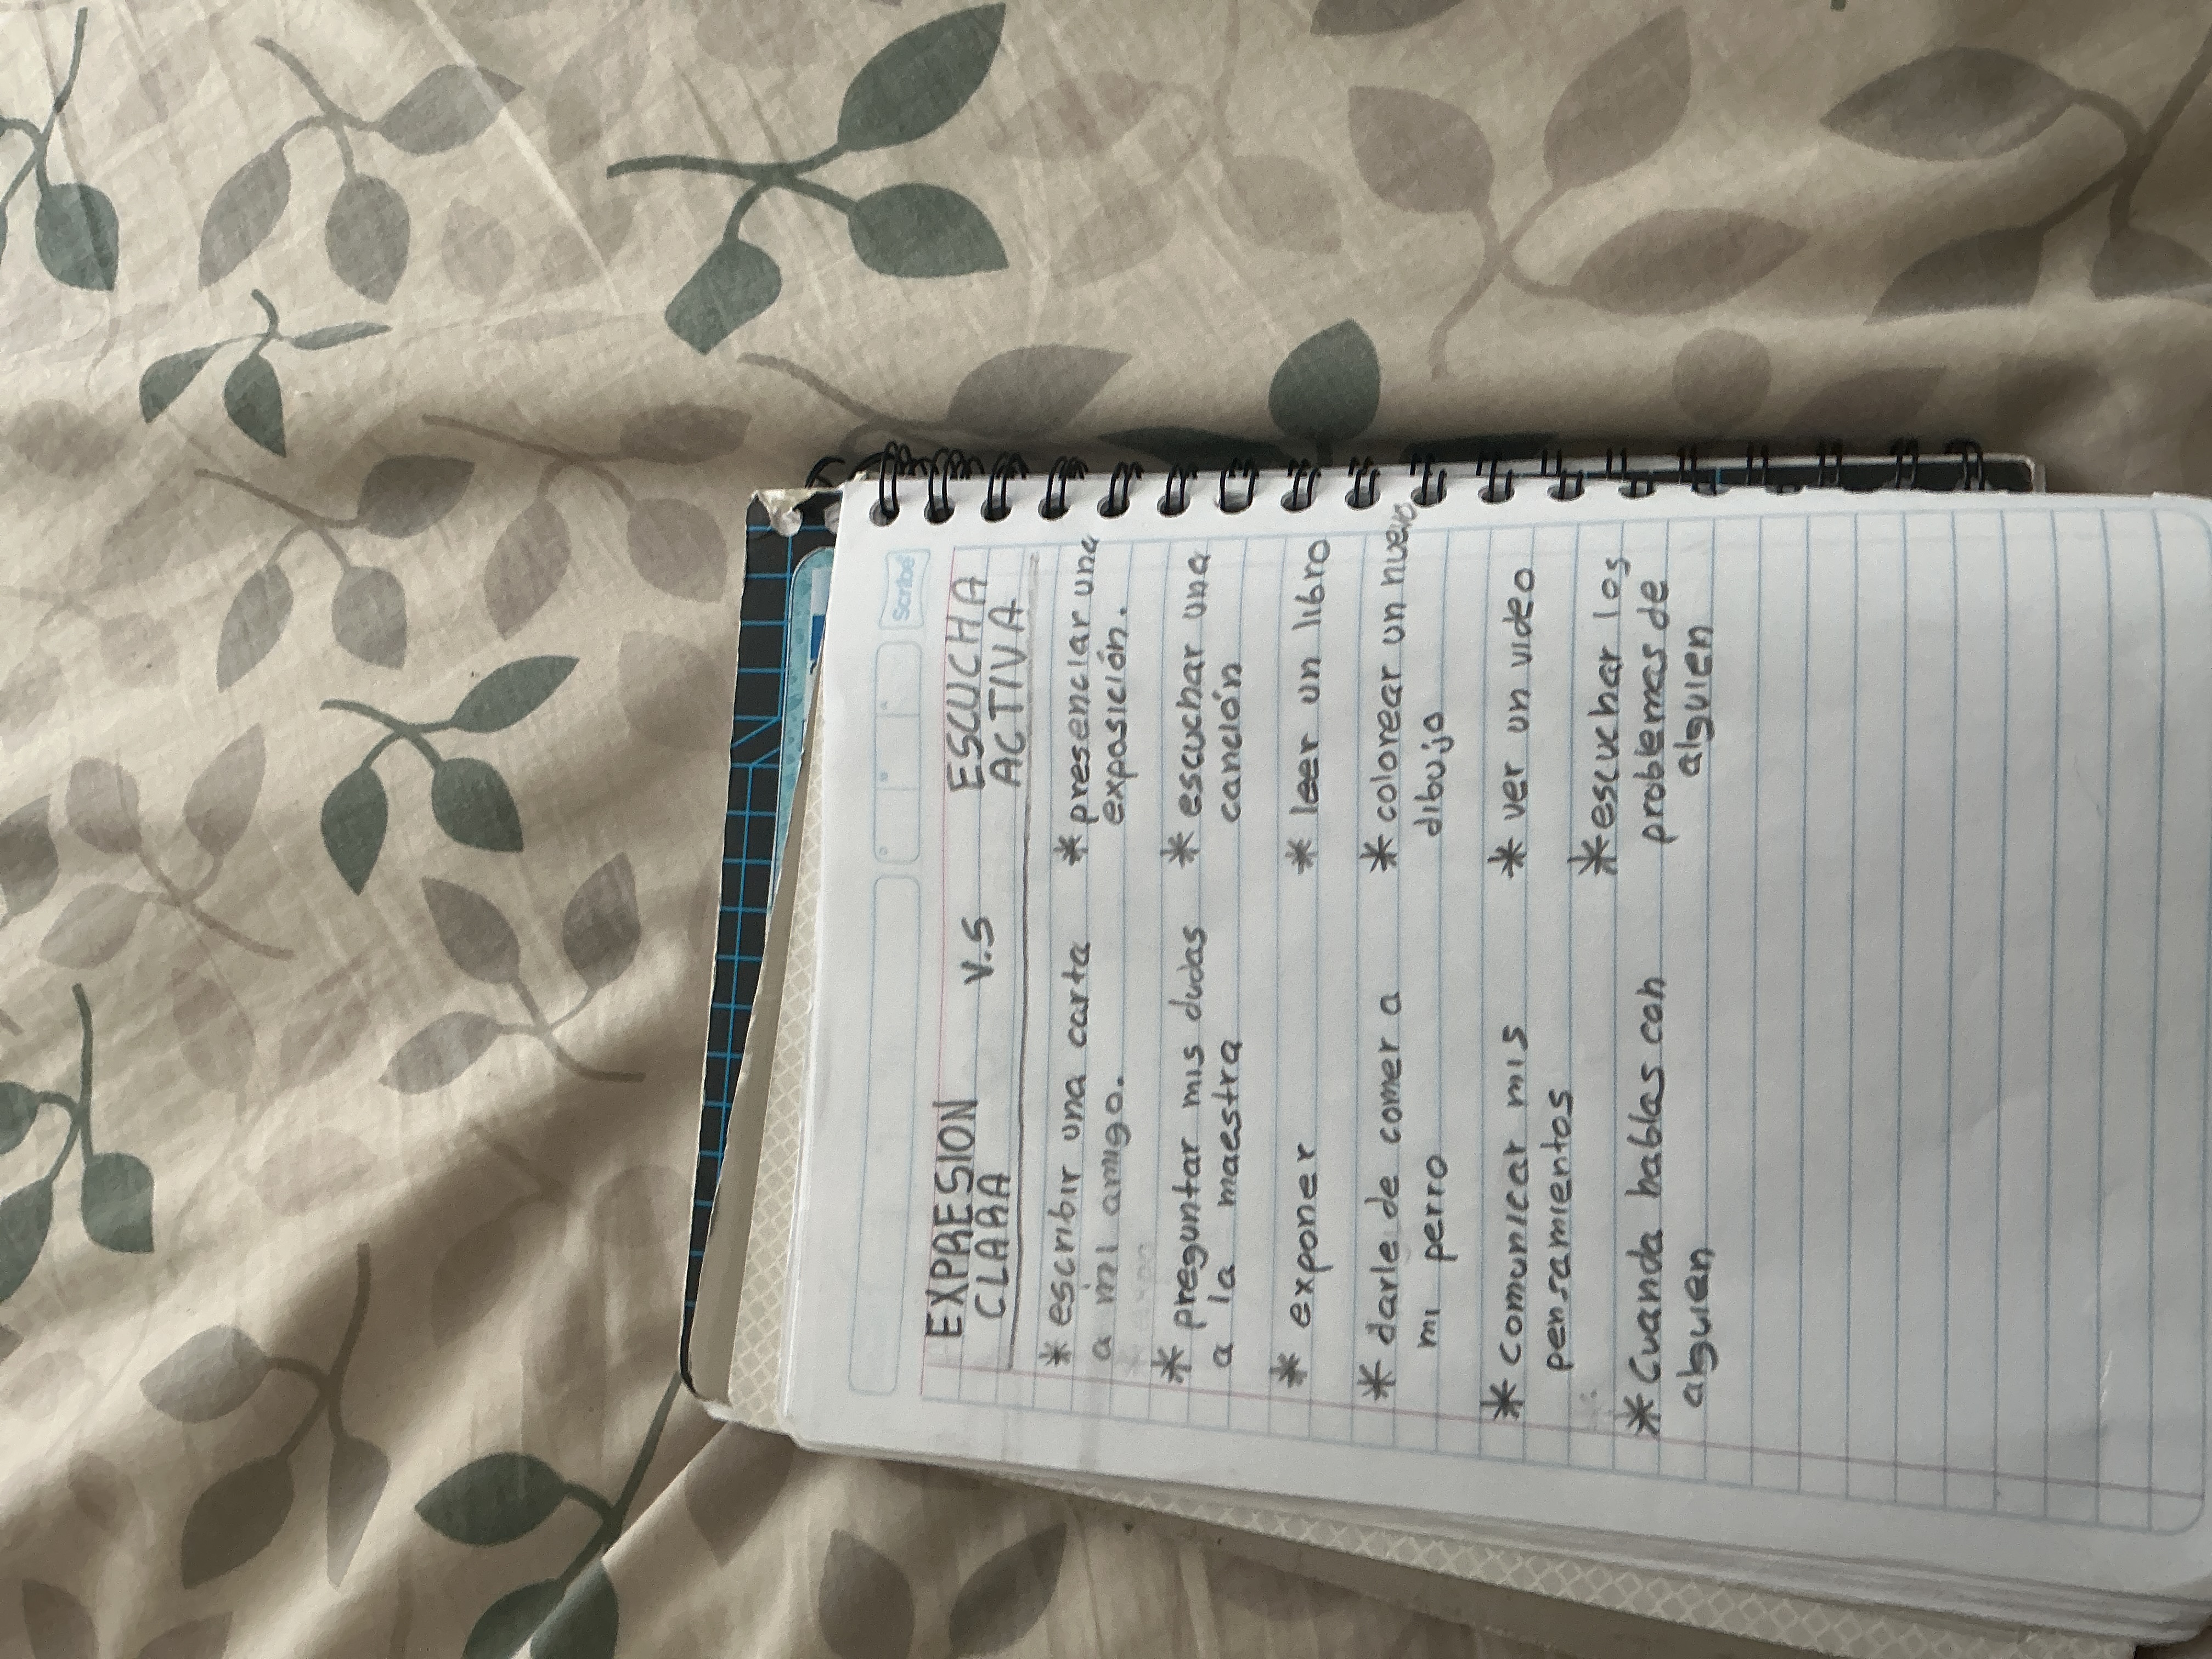 Scribe
EXPRESION V.S ESCUCHA
CLARA ACTIVA
* escribir una carta
a mi amigo.
* preguntar mis dudas
a la maestra
* exponer
* darle de comer a
mi perro
* comunicar mis
pensamientos
* Cuando hablas con
alguien
* presenciar una
exposición.
* escuchar una
canción
* leer un libro
* colorear un nuevo
dibujo
* ver un video
* escuchar los
problemas de
alguien